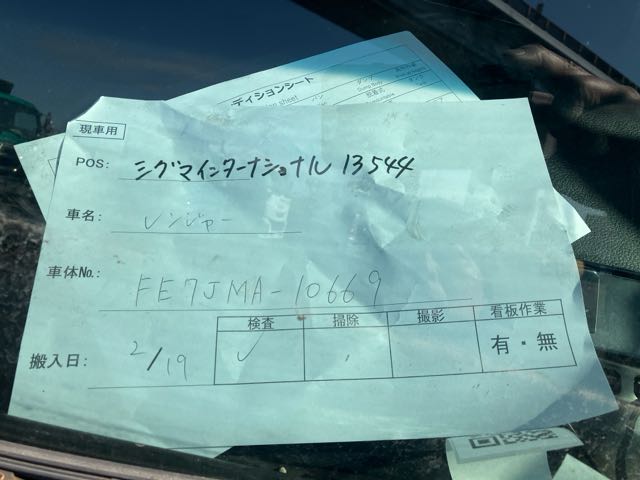 ディションシート
現車用
POS: シグマインターナショナル 13544
車名: レンジャー
車体No.: FE7JMA-10669
検査 掃除 撮影 看板作業
搬入日: 2/19 ✓ 有・無